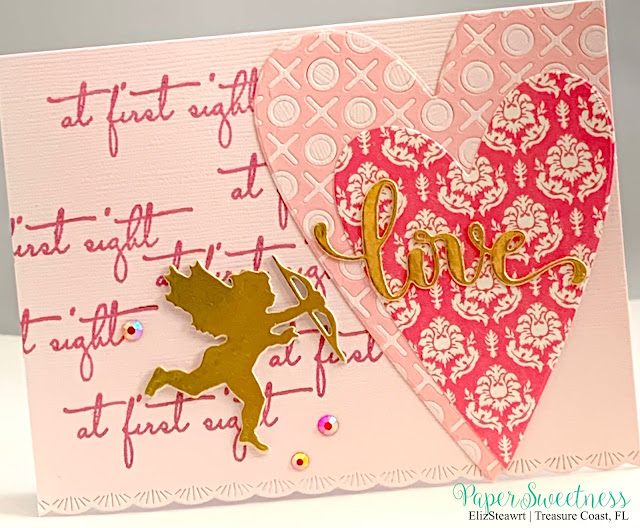 at first sight
at f
irst sight
at first sight
love
first sight
at first
at first sight
Paper Sweetness
ElizSteawrt | Treasure Coast, FL